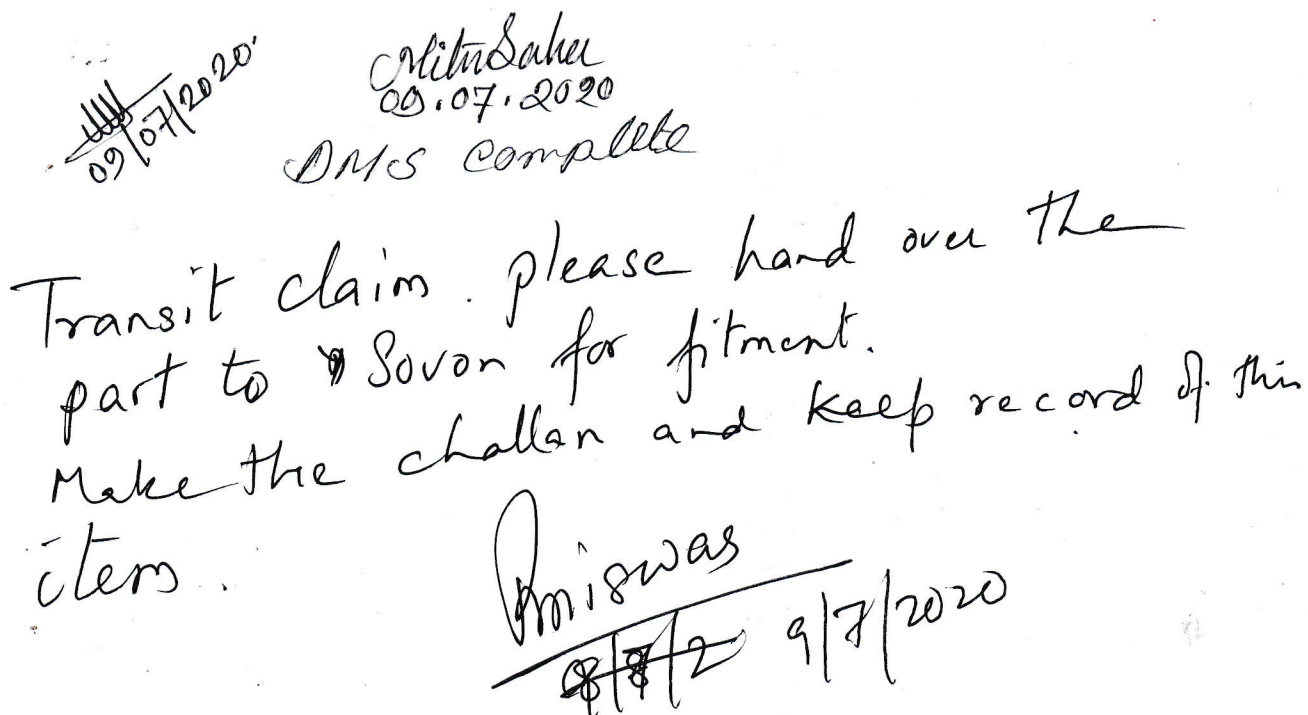 09/07/2020
Mitu Saha
09.07.2020
DMS Complete
Transit claim. please hand over the
part to Sovon for fitment.
Make the challan and keep record of this
item.
9/7/2020